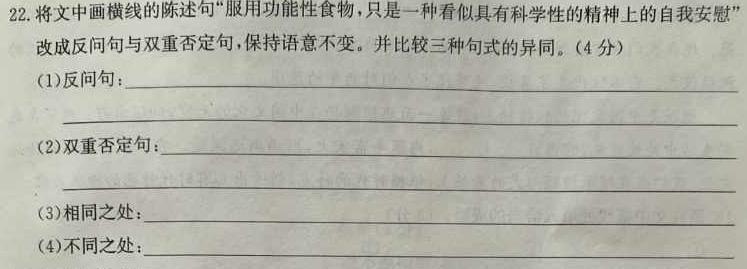 22.将文中画横线的陈述句“服用功能性食物,只是一种看似具有科学性的精神上的自我安慰”
改成反问句与双重否定句,保持语意不变。并比较三种句式的异同。(4分)
(1)反问句:
(2)双重否定句:
(3)相同之处:
(4)不同之处: